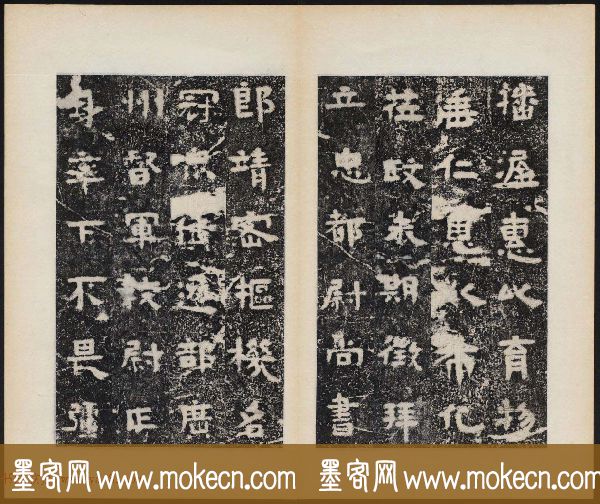 播渥惠以育物
垂仁恩以布化
莅政未期徵拜
立忠都尉尚書
郎靖密樞機名
冠眾僚遷部廣
州督軍校尉正
身率下不畏彊
墨客网 www.mokecn.com
墨客网 www.mokecn.com